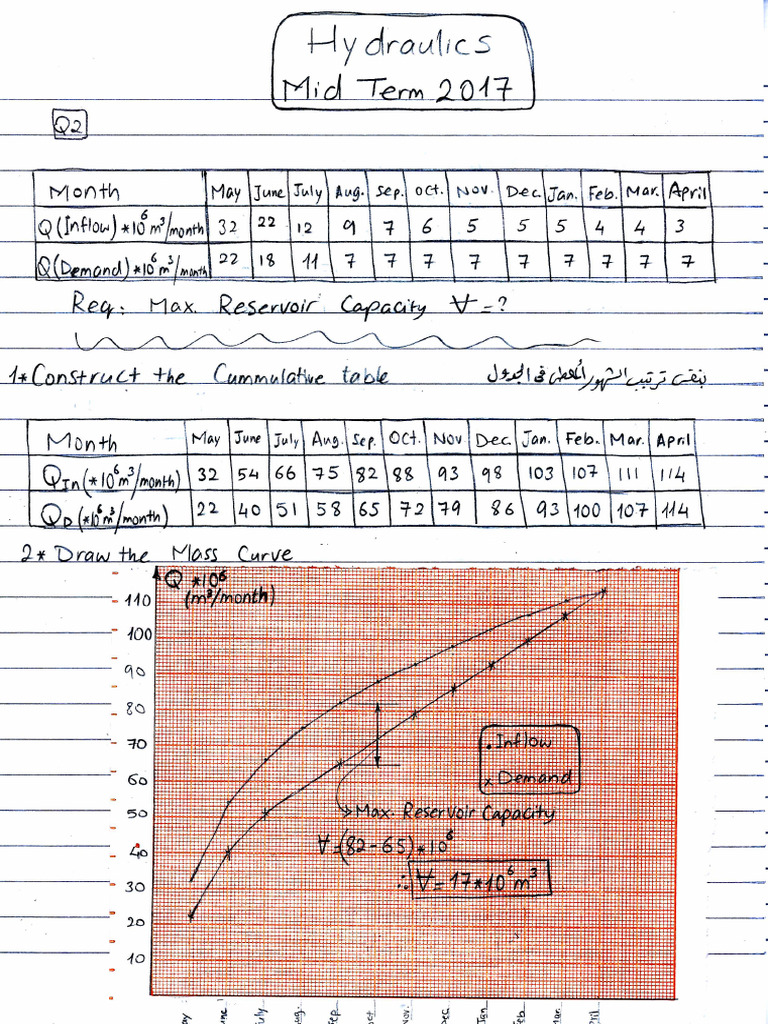 Hydraulics
Mid Term 2017
Q2
Month May June July Aug. Sep. Oct. Nov. Dec. Jan. Feb. Mar. April
Q(Inflow)*10⁶m³/month 32 22 12 9 7 6 5 5 5 4 4 3
Q(Demand)*10⁶m³/month 22 18 11 7 7 7 7 7 7 7 7 7
Req: Max. Reservoir Capacity ∀=?
1*Construct the Cummulative table بنفس ترتيب الشهور المعطى فى الجدول
Month May June July Aug. Sep. Oct. Nov Dec. Jan. Feb. Mar. April
Q_In(*10⁶m³/month) 32 54 66 75 82 88 93 98 103 107 111 114
Q_D(*10⁶m³/month) 22 40 51 58 65 72 79 86 93 100 107 114
2* Draw the Mass Curve
Q *10⁶
(m³/month)
110
100
90
80
70
60
50
40
30
20
10
. Inflow
x Demand
Max. Reservoir Capacity
∀=(82-65)*10⁶
∴ ∀= 17*10⁶m³